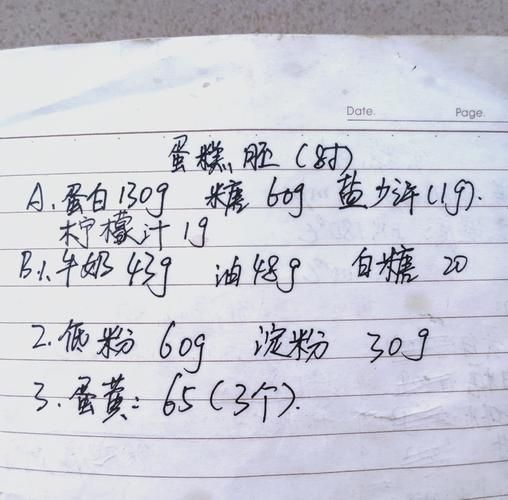 Date. Page.
蛋糕胚（8寸）
A、蛋白130g 糖60g 盐少许（1g）.
柠檬汁1g
B1、牛奶43g 油48g 白糖20
2.低粉60g 淀粉30g
3.蛋黄：65（3个）.